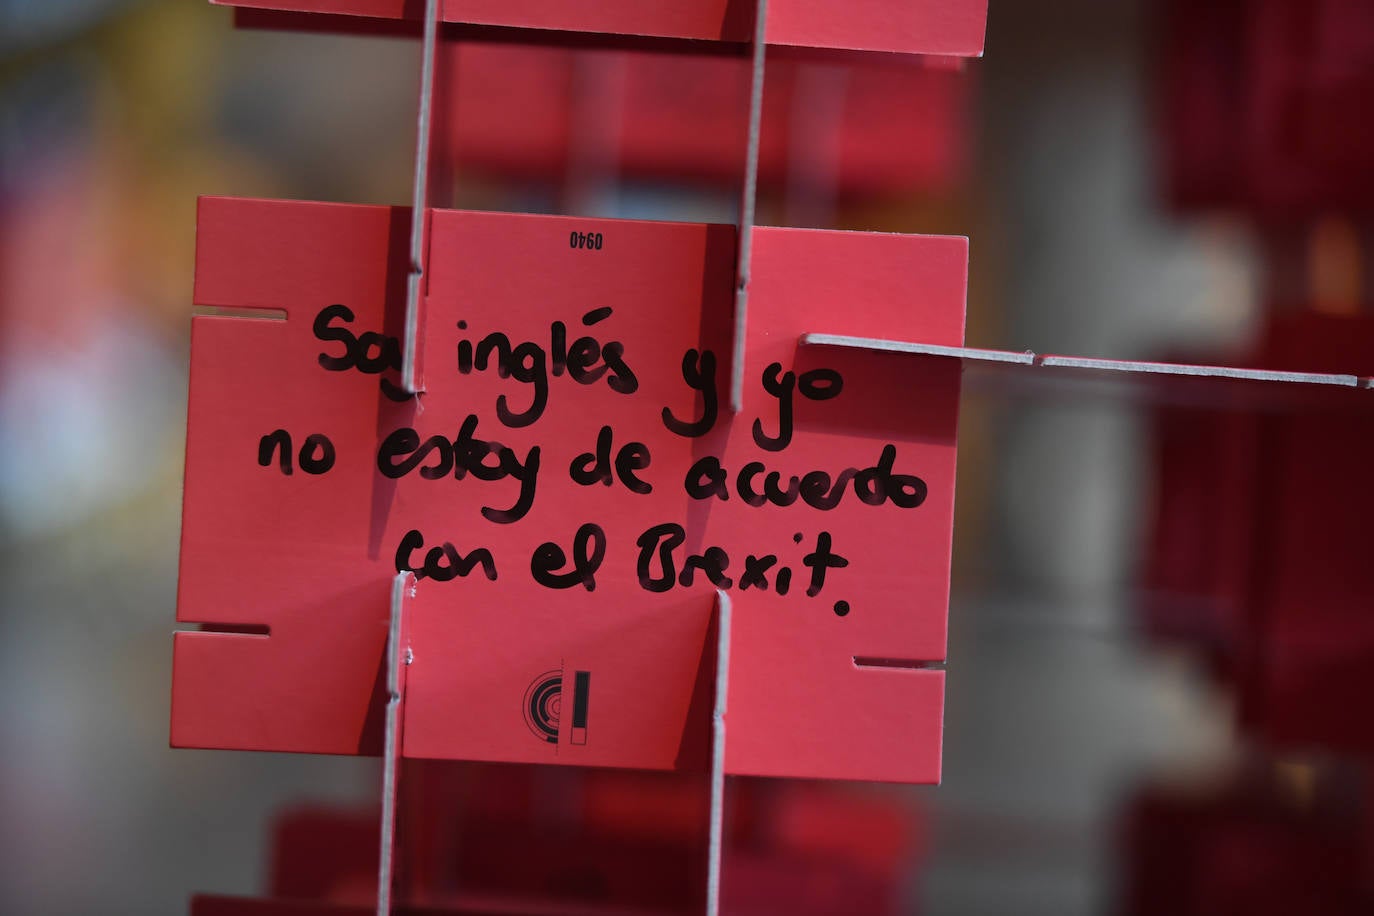 0940
Soy inglés y yo
no estoy de acuerdo
con el Brexit.